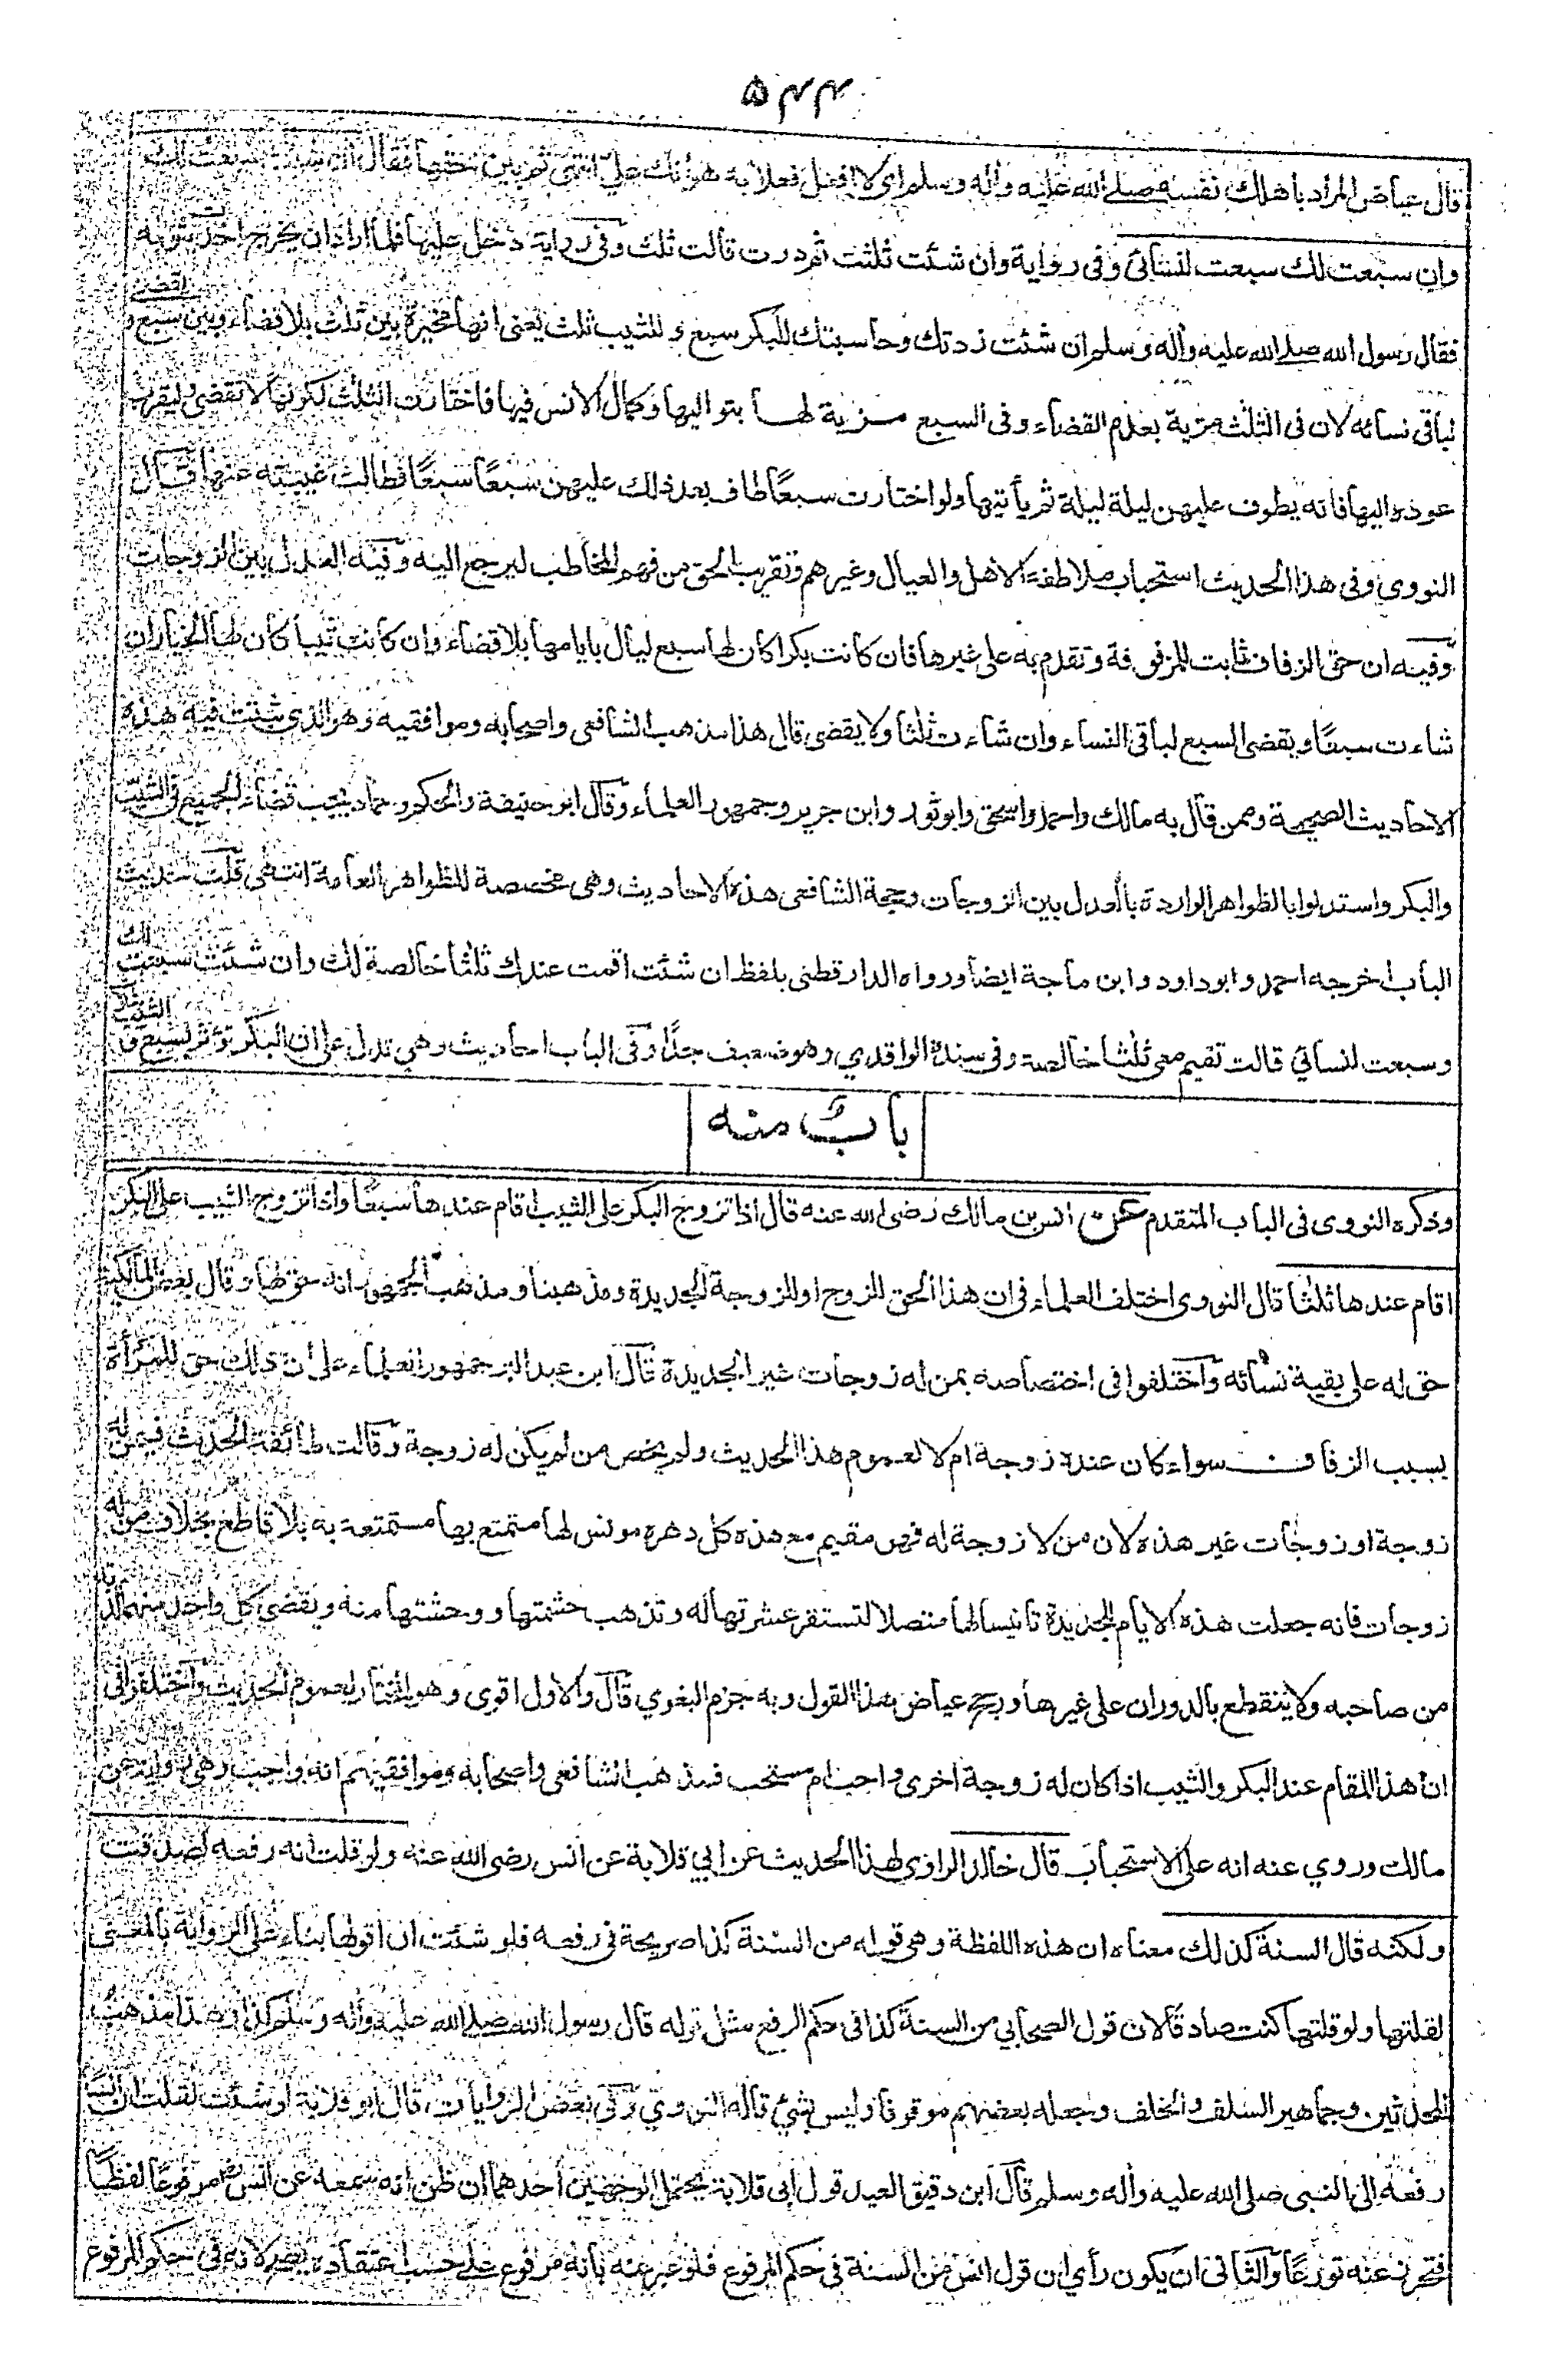 ۵۴۴
قال عياض المراد باهلك نفسه صلى الله عليه واله وسلم اى لا افعل فعلا به هوانك علىّ
وان سبعت لك سبعت لنسائى وفى رواية وان شئت ثلثت ثم درت قالت ثلث وفى رواية دخل عليها فلما اراد ان يخرج اخذت بثوبه
فقال رسول الله صلى الله عليه واله وسلم ان شئت زدتك وحاسبتك للبكر سبع و للثيب ثلث يعنى انها مخيرة بين ثلث بلا قضاء وبين سبع و يقضى
لباقى نسائه لان فى الثلث مزية بعدم القضاء وفى السبع مزية لها بتواليها وكمال الانس فيها فاختارت الثلث لكونها لا تقضى وليقرب
عوده اليها فانه يطوف عليهن ليلة ليلة ثم يأتيها ولو اختارت سبعًا طاف بعد ذلك عليهن سبعًا سبعًا فطالت غيبته عنها قال
النووي وفى هذا الحديث استحباب ملاطفة الاهل والعيال وغيرهم وتقريب الحق من فهم المخاطب ليرجع اليه وفيه العدل بين الزوجات
وفيه ان حق الزفاف ثابت للمزفوفة وتقدم به على غيرها فان كانت بكرا كان لها سبع ليال بايامها بلا قضاء وان كانت ثيبا كان لها الخيار ان
شاءت سبعًا ويقضى السبع لباقى النساء وان شاءت ثلثا ولا يقضى قال هذا مذهب الشافعى واصحابه وموافقيه وهو الذى ثبتت فيه هذه
الاحاديث الصحيحة وممن قال به مالك واحمد واسحق وابوثور وابن جرير وجمهور العلماء وقال ابوحنيفة والحكم وحماد يجب قضاء الجميع فى الثيب
والبكر واستدلوا بالظواهر الواردة بالعدل بين الزوجات وحجة الشافعى هذه الاحاديث وهى مخصصة للظواهر العامة انتهى قلت حديث
الباب اخرجه احمد وابوداود وابن ماجة ايضا ورواه الدارقطنى بلفظ ان شئت اقمت عندك ثلثا خالصة لك وان شئت سبعت لك
وسبعت لنسائي قالت تقيم معى ثلثا خالصة وفى سنده الواقدي وهو ضعيف جدًّا وفى الباب احاديث وهي تدل على ان البكر تؤثر بسبع و الثيب بثلاث
باب منه
وذكره النووى فى الباب المتقدم عن انس بن مالك رضى الله عنه قال اذا تزوج البكر على الثيب اقام عندها سبعًا واذا تزوج الثيب على البكر
اقام عندها ثلثا قال النووى اختلف العلماء فى ان هذا الحق للزوج او للزوجة الجديدة ومذهبنا ومذهب الجمهور انه حق لها وقال بعض المالكية
حق له على بقية نسائه واختلفوا فى اختصاصه بمن له زوجات غير الجديدة قال ابن عبد البر جمهور العلماء على ان ذلك حق للمرأة
بسبب الزفاف سواء كان عنده زوجة ام لا لعموم هذا الحديث ولم يخص من لم يكن له زوجة وقالت طائفة الحديث فيمن له
زوجة او زوجات غير هذه لان من لا زوجة له فهو مقيم مع هذه كل دهره مونس لها متمتع بها مستمتعة به بلا قاطع بخلاف من له
زوجات فانه جعلت هذه الايام للجديدة تانيسا لها متصلا لتستقر عشرتها له وتذهب حشمتها ووحشتها منه ويقضى كل واحد منهما لذته
من صاحبه ولا ينقطع بالدوران على غيرها ورجح عياض هذا القول وبه جزم البغوي قال والاول اقوى وهو المختار لعموم الحديث واختلفوا فى
ان هذا المقام عند البكر والثيب اذا كان له زوجة اخرى واجب ام مستحب فمذهب الشافعى واصحابه وموافقيهم انه واجب وهى رواية عن
مالك وروي عنه انه على الاستحباب قال خالد الراوى لهذا الحديث عن ابي قلابة عن انس رضى الله عنه ولو قلت انه رفعه لصدقت
ولكنه قال السنة كذلك معناه ان هذه اللفظة وهى قوله من السنة كذا صريحة فى رفعه فلو شئت ان اقولها بناء على الرواية بالمعنى
لقلتها ولو قلتها كنت صادقا لان قول الصحابي من السنة كذا فى حكم الرفع مثل قوله قال رسول الله صلى الله عليه واله وسلم كذا وهذا مذهب
المحدثين وجماهير السلف والخلف وجعله بعضهم موقوفا وليس بشئ قاله النووي وفى بعض الروايات قال ابو قلابة لو شئت لقلت ان انسا
رفعه الى النبى صلى الله عليه واله وسلم قال ابن دقيق العيد قول ابى قلابة يحتمل وجهين احدهما ان ظن انه سمعه عن انس مرفوعا لفظا
فتحرز عنه تورعًا والثانى ان يكون رأي ان قول انس من السنة فى حكم المرفوع فلو عبر عنه بانه مرفوع على حسب اعتقاده لصح لانه فى حكم المرفوع